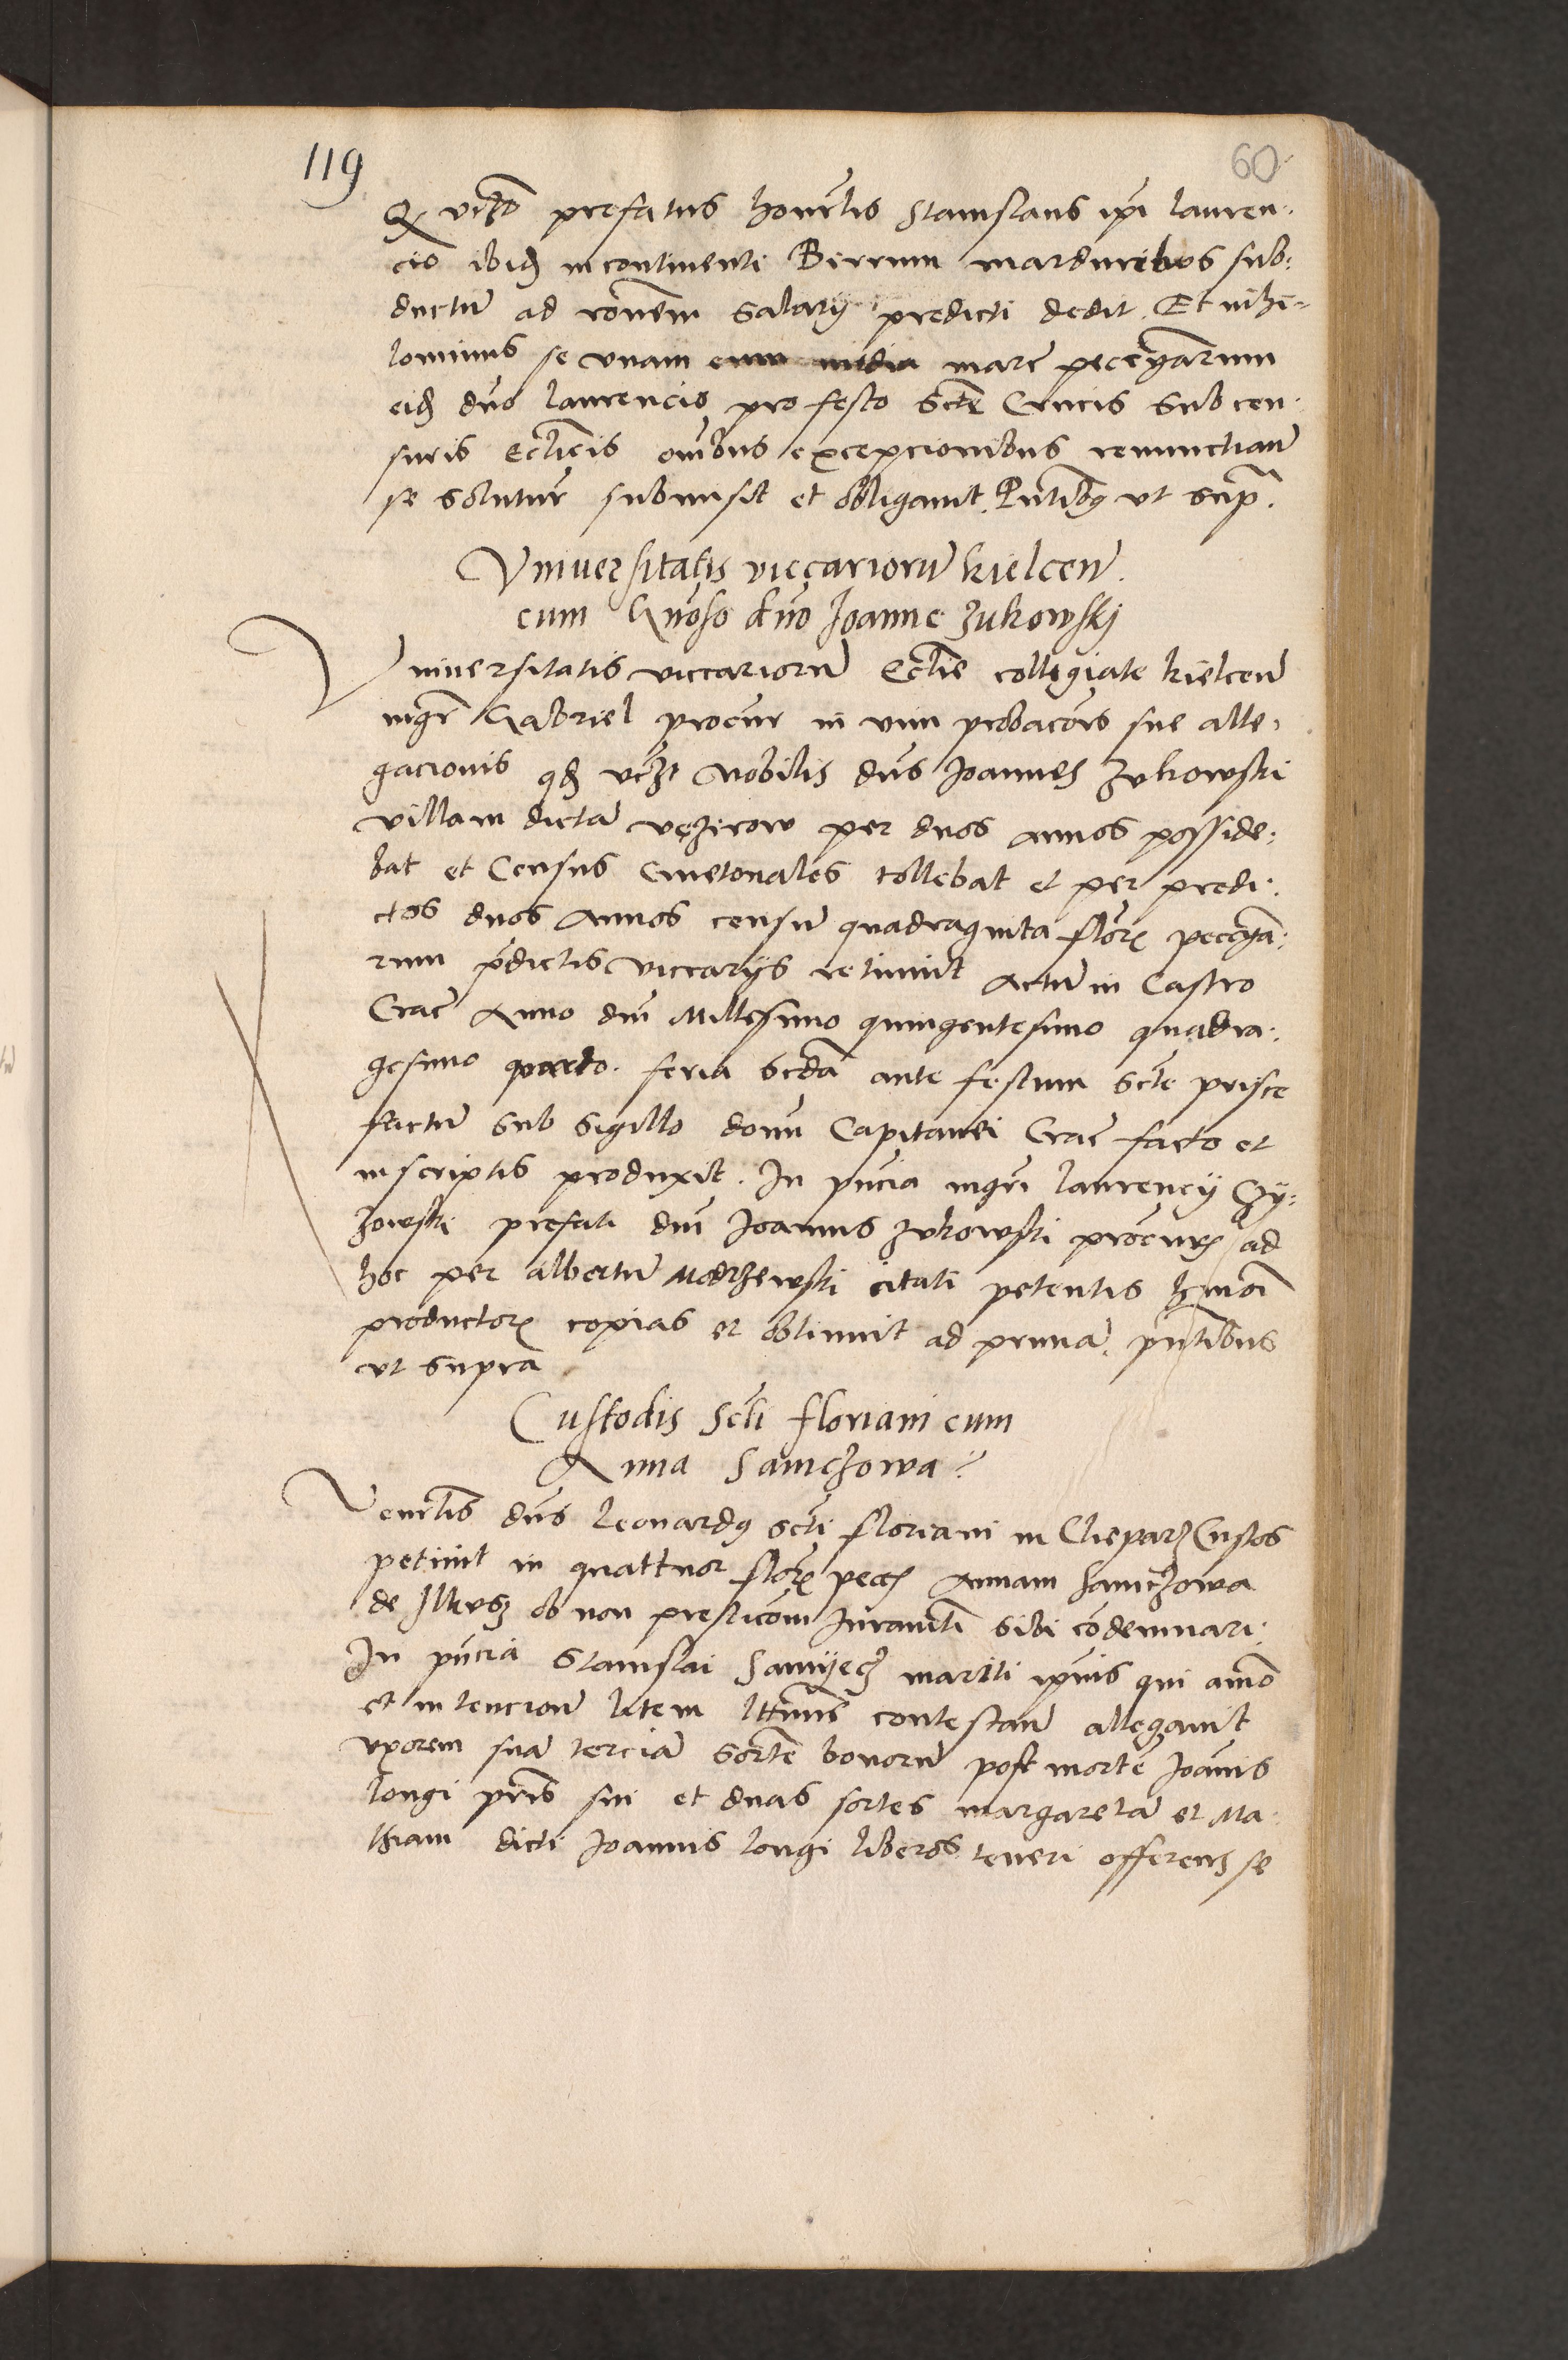 119
60
Q victo prefatus honorlis Stanislaus ipi lauren-
cio ibid incontinenti Birrum marduribus sub-
ductu ad ronem salarij predicti dedit. Et nihi-
lominus se vnam marc peccyarum
eid dno laurencio pro festo Scte Crucis sub cen-
suris Ecclicis oibus excepcionibus renunctian
se solutur submisit et obligauit. Pntibq vt sup.
Vniuersitatis viccarioru kielcen
cum Gnoso dno Joanne Zukowskj
Vniuersitatis viccarioru Ecclie collegiate kielcen
mgr Gabriel procur in vim probacois sue alle-
gacionis qd vczt Nobilis dns Joannes Zukowski
villam dicta per duos annos posside-
bat et Census Cmetonales tollebat et per predi-
ctos duos Annos censu quadraginta flor peccya-
rum pdictis viccarijs retinuit Actu in Castro
Crac Anno dni Millesimo quingentesimo quadra-
gesimo quarto. feria scda ante festum Scte prisce
factu sub sigillo domi Capitanei Crac facto et
in scriptis produxit. In pncia mgri laurencij Czy-
zowski prefati dni Joannis Zukowski procuris ad
hoc per albertu citati petentis hmoi
productor copias et obtinuit ad prima. pntibus
vt supra
Custodis Scti floriani cum
Anna Samczowa
Venerlis dns leonardq scti floriani in Cliepar Custos
petiuit in quattuor flor pecc Annam Samczowa
de Ilkusz ob non presticom Juramti sibi codemnari.
In pncia Stanislai Samyecz mariti ipius qui aimo
et intencione litem contestan allegauit
vxorem sua tercia sorte bonoru post morte Joanis
longi pris sui et duas sortes margareta et Ma-
thiam dicti Joannis longi liberos teneri offerens se